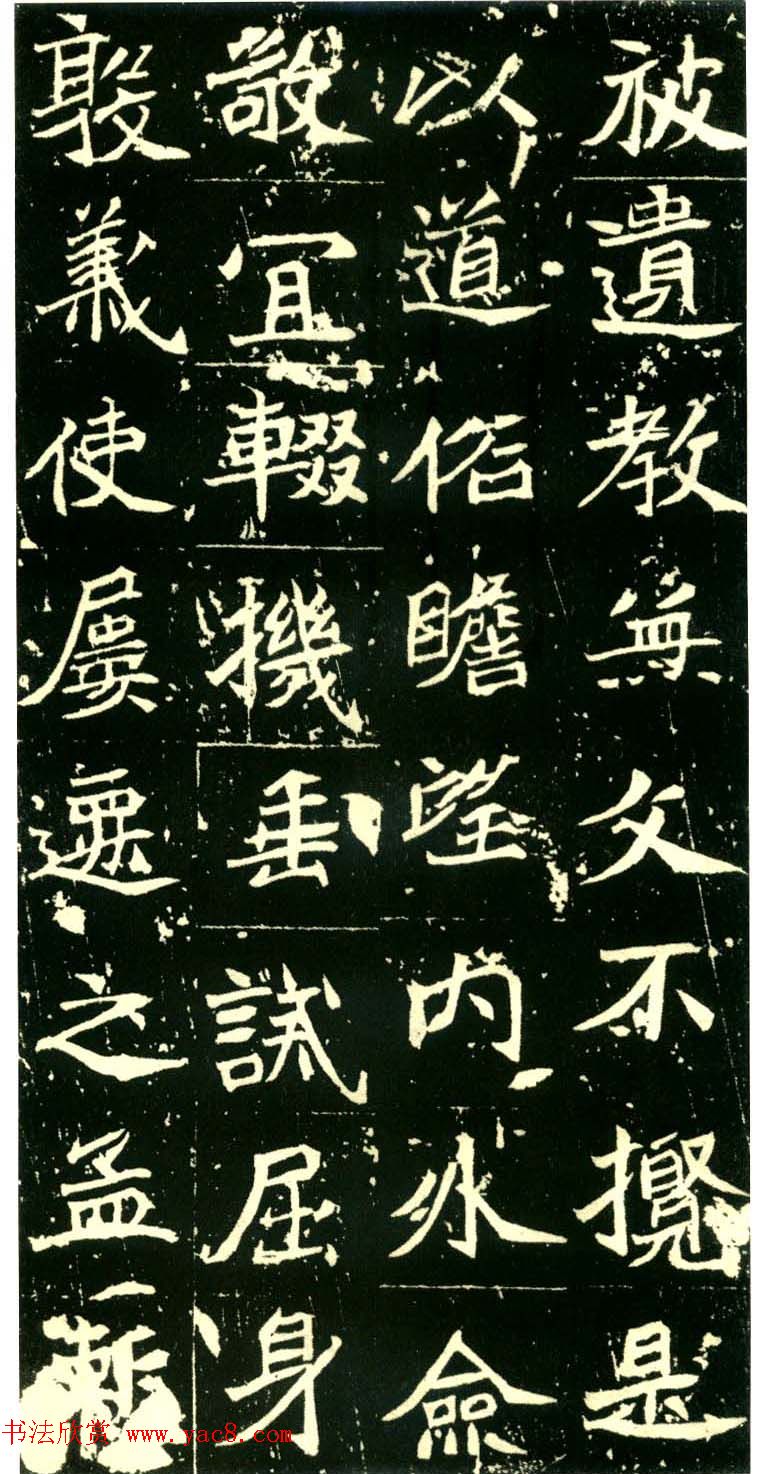 被遺教無文不攬是
以道俗瞻望内外僉
敬宜輟機垂試屈身
義使屢之孟
书法欣赏 www.yac8.com